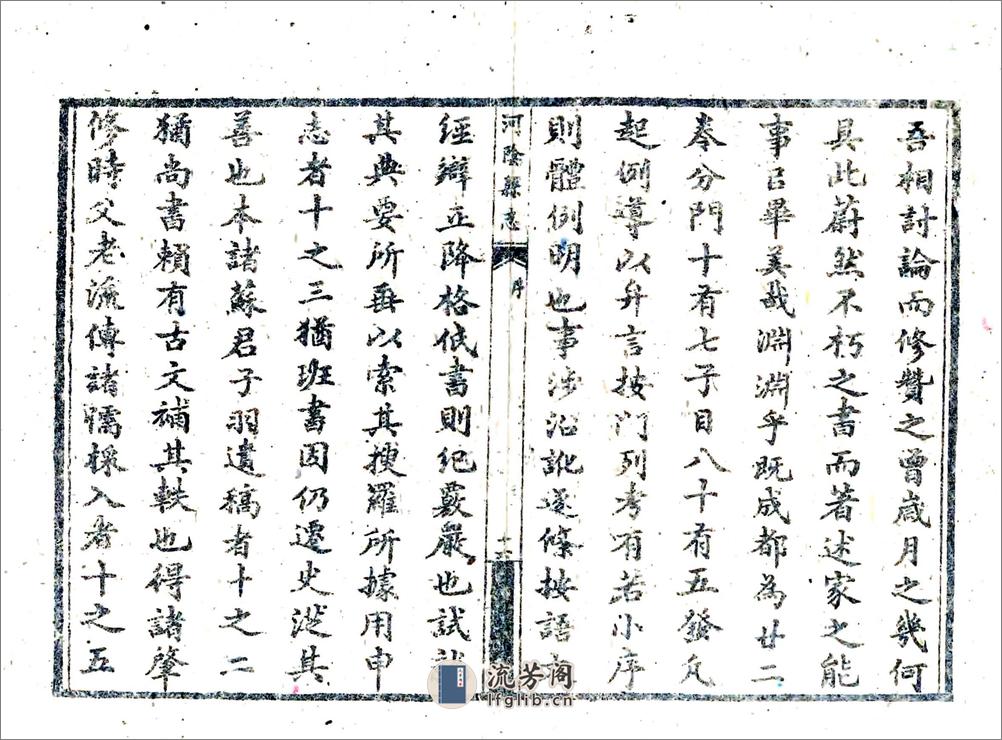 吾相討論而修贊之曾歲月之幾何
具此蔚然不朽之書而著述家之能
事已畢美哉淵淵乎既成都為廿二
卷分門十有七子目八十有五發凡
起例導以弁言按門列考有若小序
則體例明也事涉沿訛逐條按語
河陰縣志
序
經辯正降格低書則紀覈嚴也試
其典要所再以索其搜羅所據用申
志者十之三猶班書因仍遷史從其
善也本諸蘇君子羽遺稿者十之二
猶尚書賴有古文補其軼也得諸肇
修時父老流傳諸儒採入者十之五
流芳阁
lfglib.cn